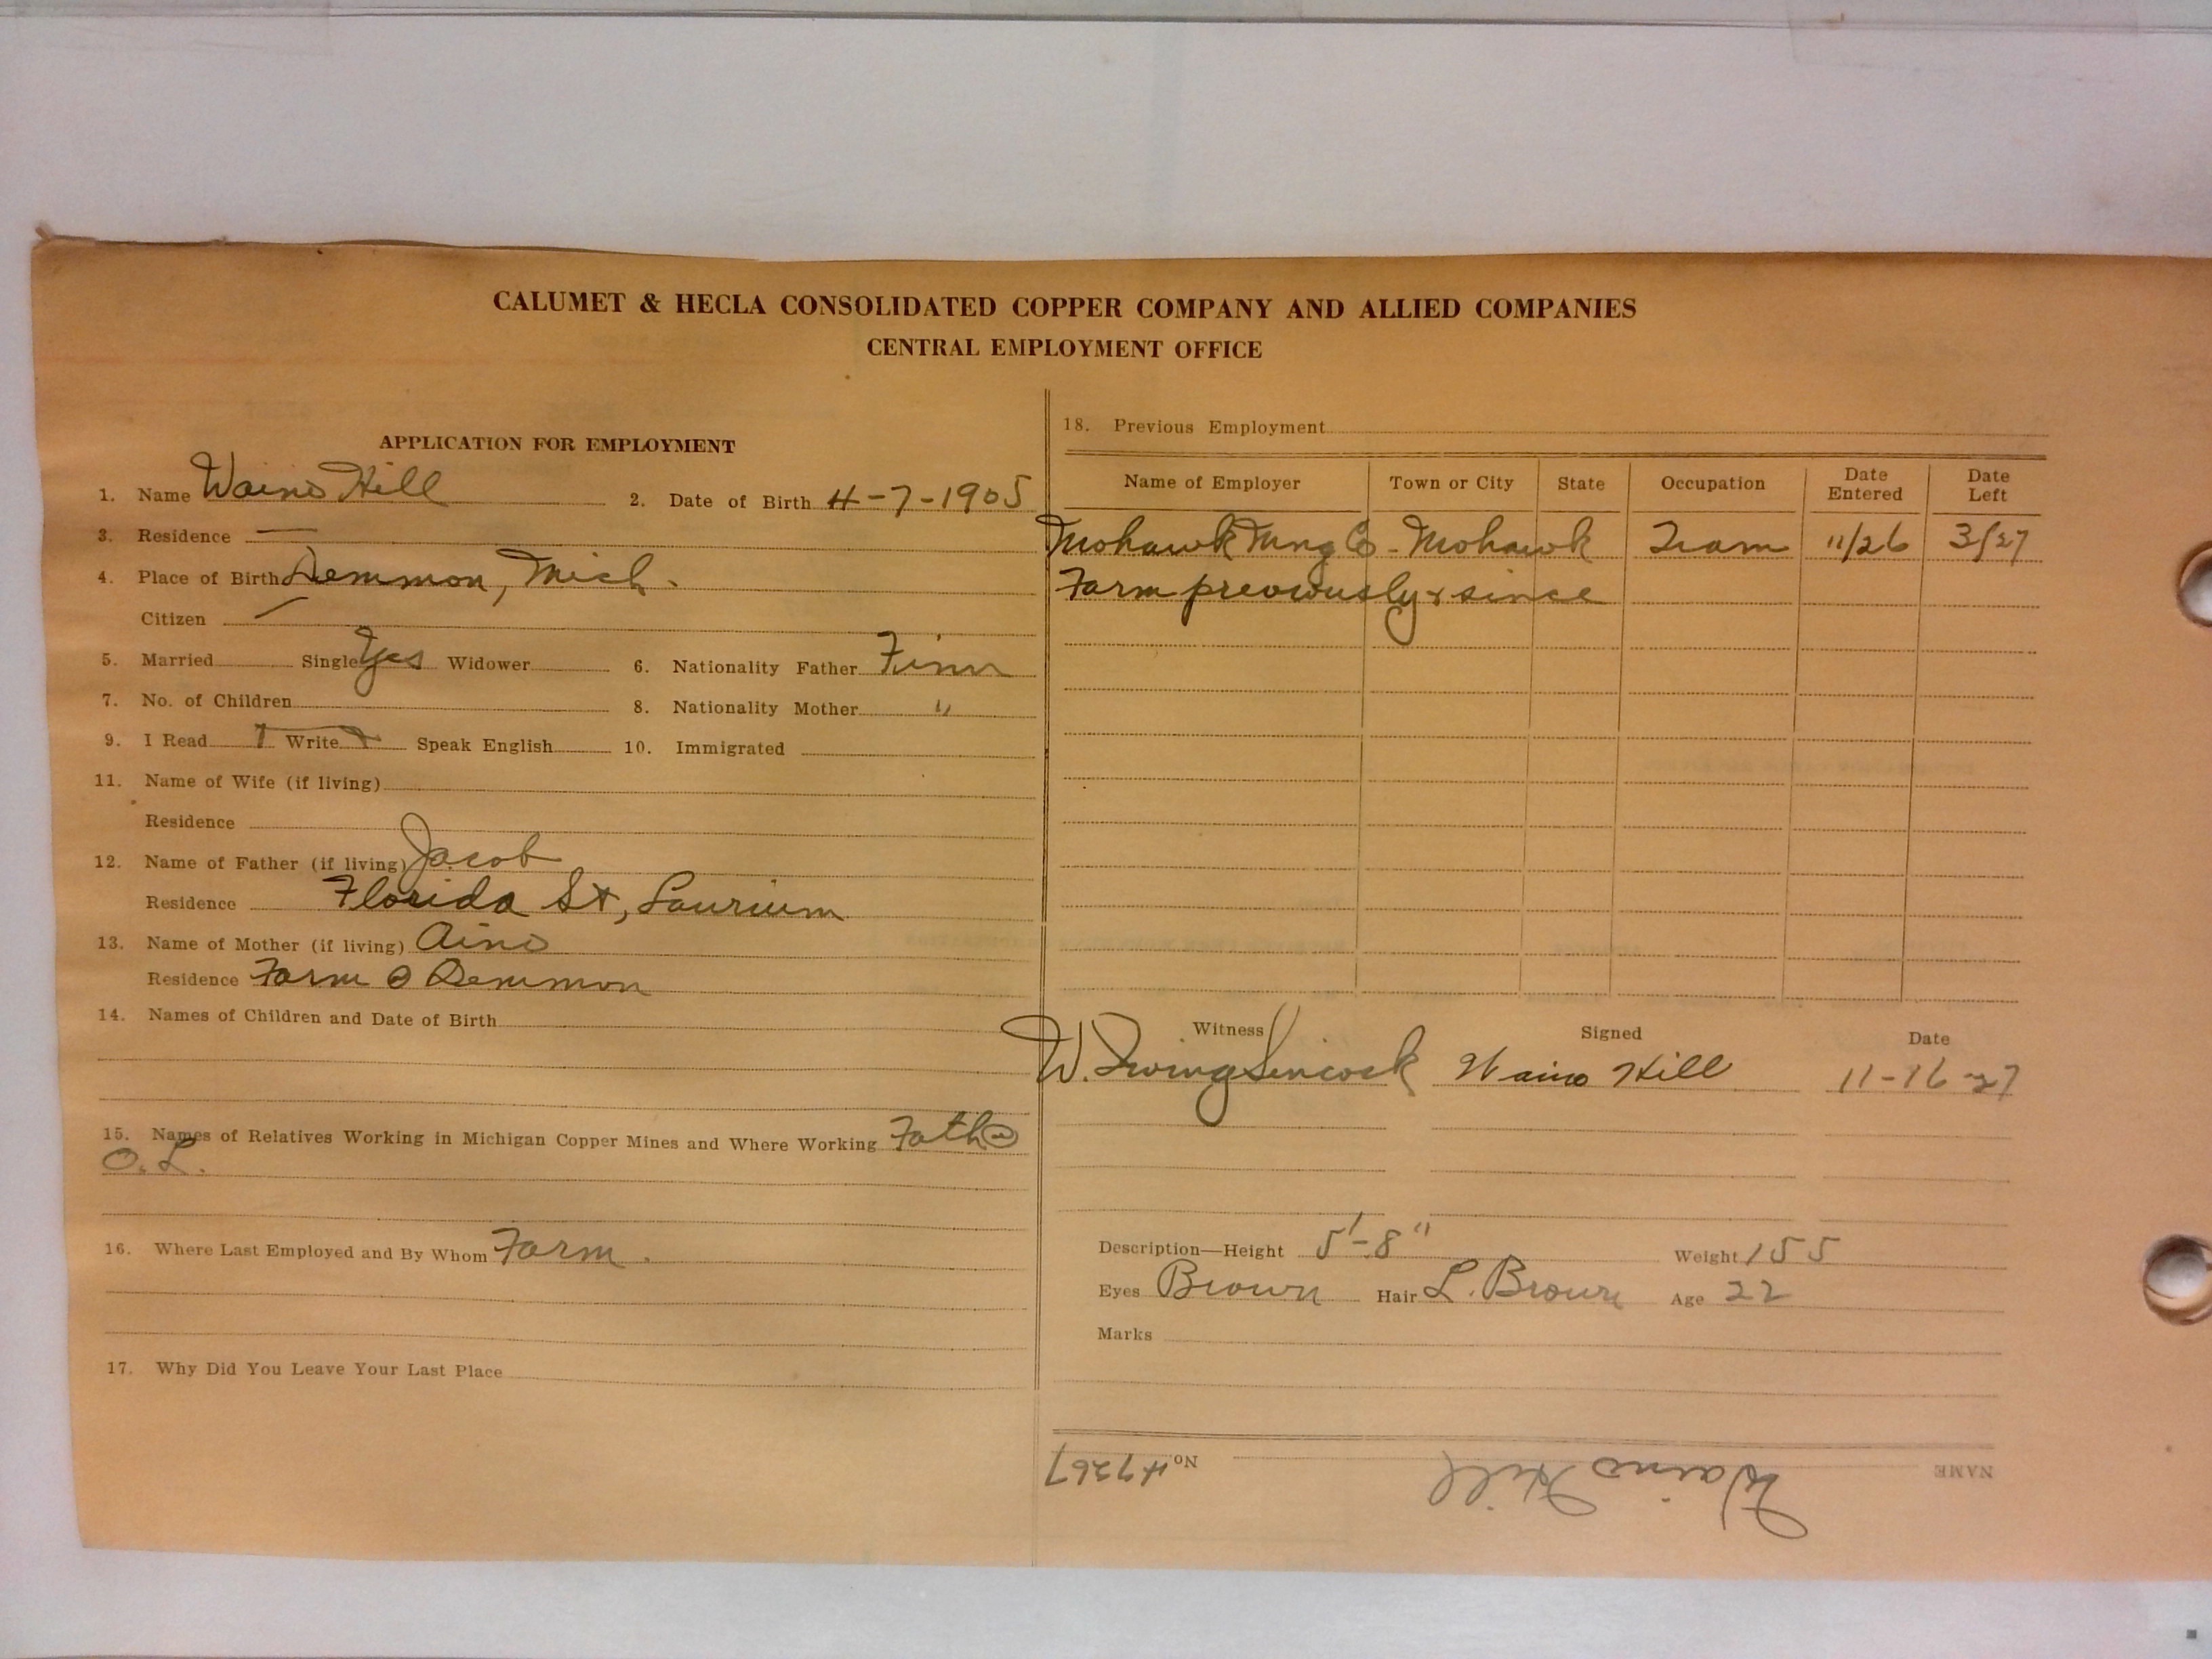 CALUMET & HECLA CONSOLIDATED COPPER COMPANY AND ALLIED COMPANIES
CENTRAL EMPLOYMENT OFFICE
APPLICATION FOR EMPLOYMENT
1. Name Waino Hill 2. Date of Birth 4-7-1905
3. Residence —
4. Place of Birth Demmon, Mich.
Citizen
5. Married Single Yes Widower 6. Nationality Father Finn
7. No. of Children 8. Nationality Mother "
9. I Read Write Speak English 10. Immigrated
11. Name of Wife (if living)
Residence
12. Name of Father (if living) Jacob
Residence Florida St, Laurium
13. Name of Mother (if living) Aino
Residence Farm @ Demmon
14. Names of Children and Date of Birth
15. Names of Relatives Working in Michigan Copper Mines and Where Working Fath @
O. L.
16. Where Last Employed and By Whom Farm.
17. Why Did You Leave Your Last Place
18. Previous Employment
Name of Employer Town or City State Occupation Date Entered Date Left
Mohawk Mng Co - Mohawk Tram 11/26 3/27
Farm previously & since
Witness Signed Date
W. Irving Sincock Waino Hill 11-16-27
Description—Height 5'-8" Weight 155
Eyes Brown Hair L. Brown Age 22
Marks
NAME Waino Hill No. 47267